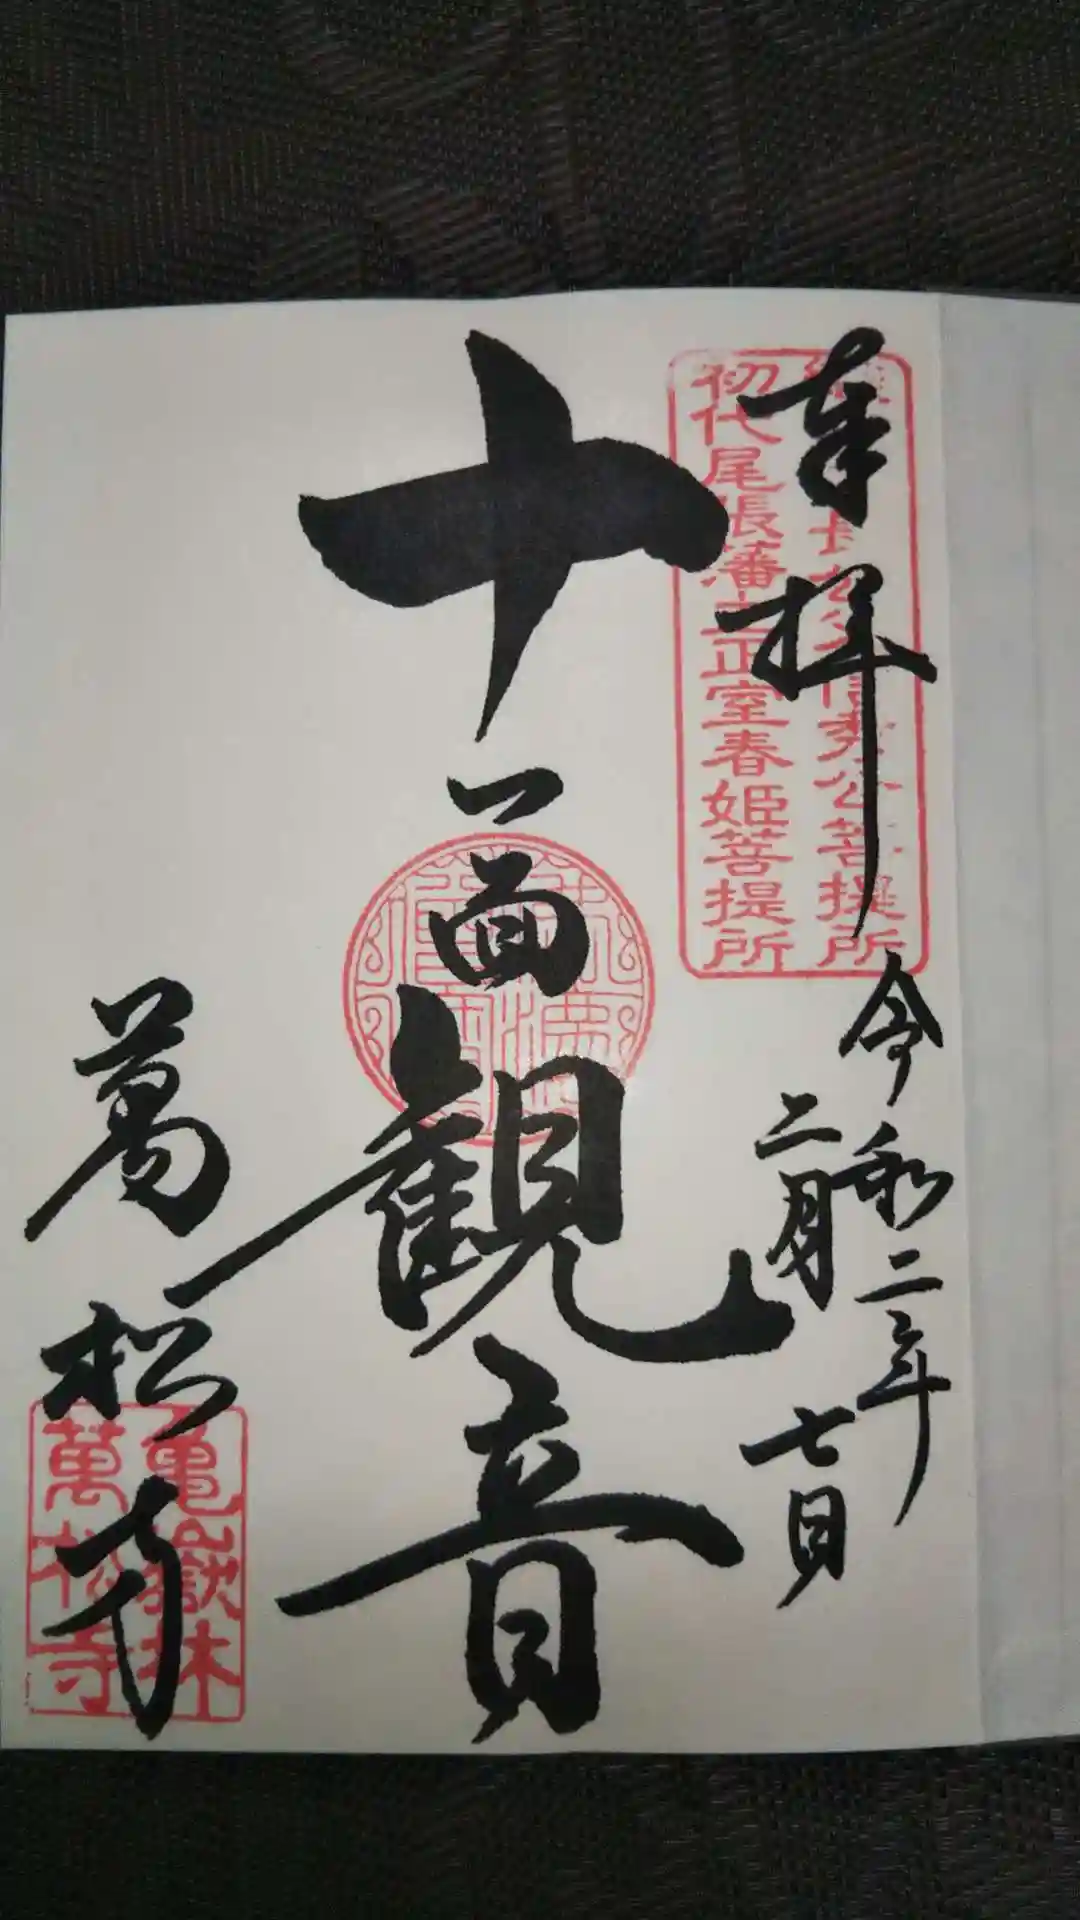 奉拝
令和二年
二月七日
十一面観音
萬松寺
信長公父信秀公菩提所
初代尾張藩主正室春姫菩提所
亀嶽林
萬松寺